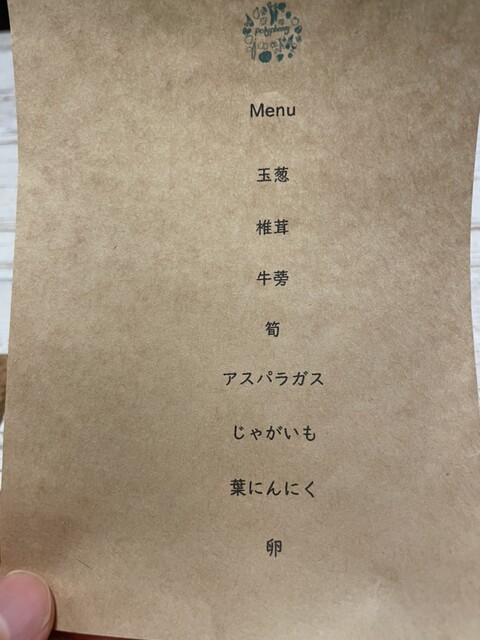 polyphony
Menu
玉葱
椎茸
牛蒡
筍
アスパラガス
じゃがいも
葉にんにく
卵